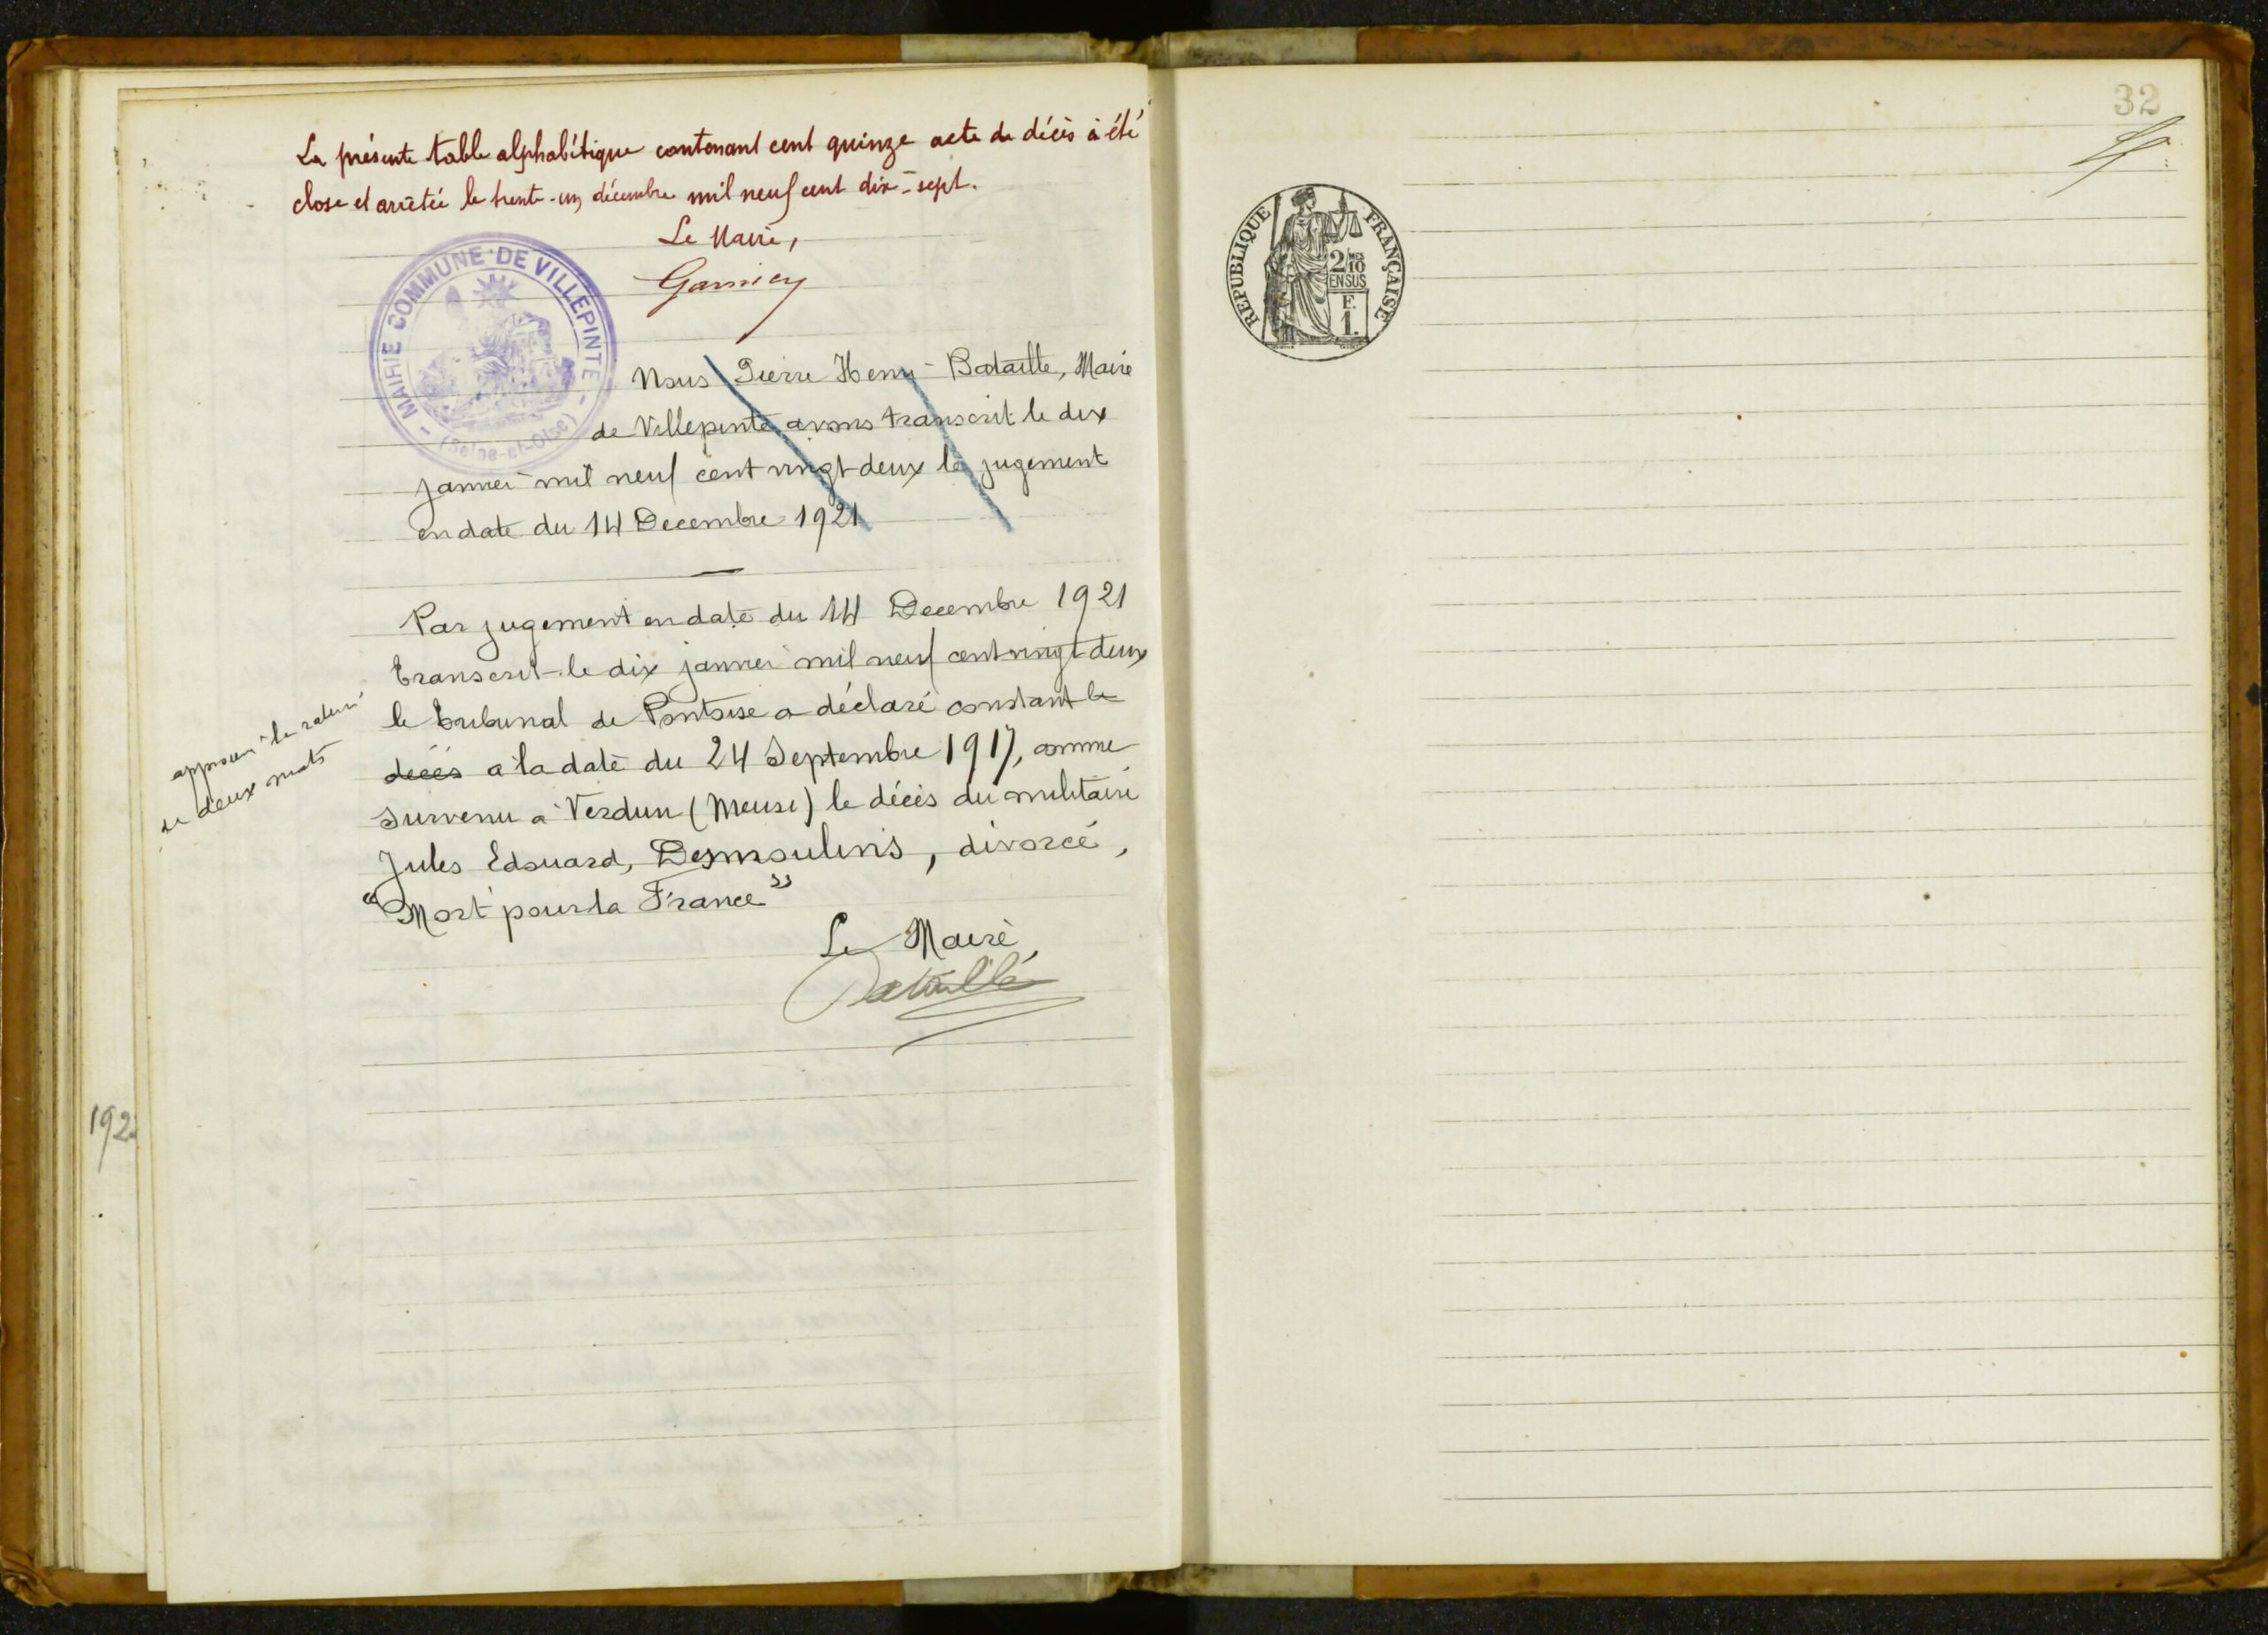 La présente table alphabétique contenant cent quinze acte de décès à été
close et arrêtée le trente-un décembre mil neuf cent dix-sept.
Le Maire,
Garnier
MAIRIE COMMUNE DE VILLEPINTE
(Seine-et-Oise)
Nous Pierre Henri Bataille, Maire
de Villepinte avons transcrit le dix
janvier mil neuf cent vingt deux le jugement
en date du 14 Decembre 1921
Par jugement en date du 14 Decembre 1921
transcrit le dix janvier mil neuf cent vingt deux
le tribunal de Pontoise a déclaré constant le
décés a la date du 24 Septembre 1917, comme
survenu a Verdun (Meuse) le décès du militaire
Jules Edouard, Desmoulins, divorcé,
"Mort pour la France"
Le Maire,
Bataille
approuvé la rature
de deux mots
192
32
REPUBLIQUE FRANÇAISE
2/10 MES
EN SUS
F.
1.